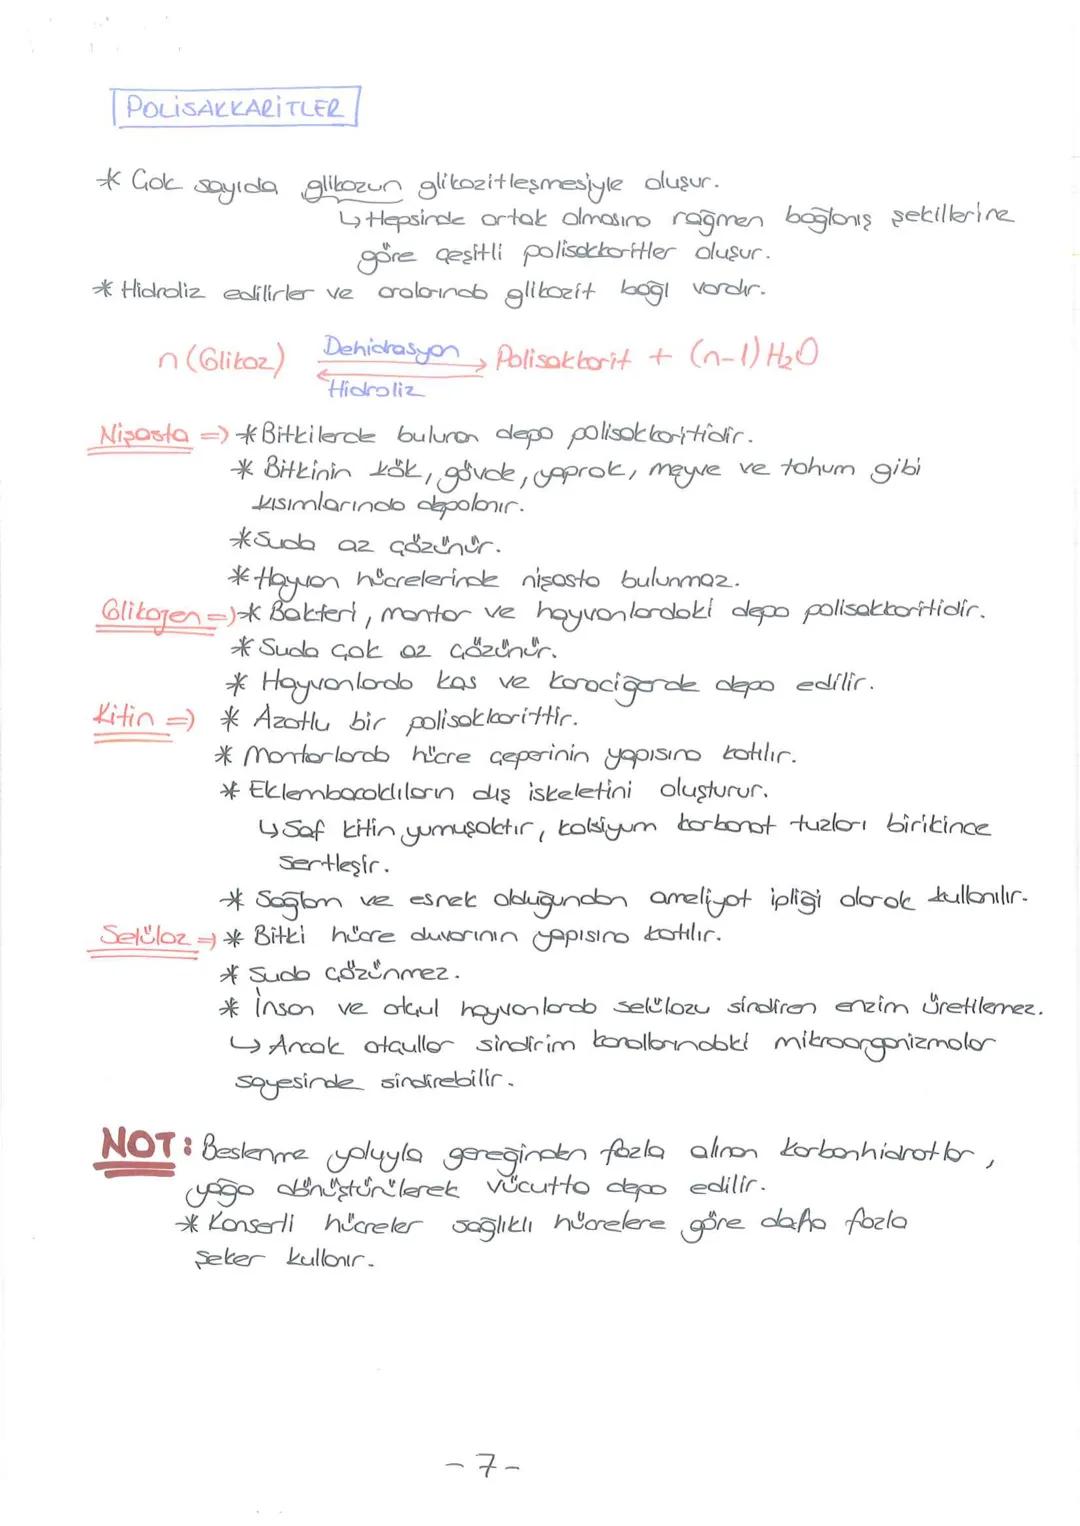 POLİSAKKARİTLER
* Çok sayıda glikozun glikozitleşmesiyle oluşur.
↳ Hepsinde ortak olmasına rağmen bağlanış şekillerine
göre çeşitli polisakkaritler oluşur.
* Hidroliz edilirler ve aralarında glikozit bağı vardır.
n(Glikoz) Dehidrasyon Polisakkarit + (n-1) H₂O
Hidroliz
Nişasta => * Bitkilerde bulunan depo polisakkaritidir.
* Bitkinin kök, gövde, yaprak, meyve ve tohum gibi
kısımlarında depolanır.
* Suda az çözünür.
* Hayvan hücrelerinde nişasta bulunmaz.
Glikojen => * Bakteri, mantar ve hayvanlardaki depo polisakkaritidir.
* Suda çok az çözünür.
* Hayvanlarda kas ve karaciğerde depo edilir.
Kitin => * Azotlu bir polisakkarittir.
* Mantarlarda hücre çeperinin yapısına katılır.
* Eklembacaklıların dış iskeletini oluşturur.
↳ Saf kitin yumuşaktır, kalsiyum karbonat tuzları birikince
sertleşir.
* Sağlam ve esnek olduğundan ameliyat ipliği olarak kullanılır.
Selüloz => * Bitki hücre duvarının yapısına katılır.
* Suda çözünmez.
* İnsan ve otçul hayvanlarda selülozu sindiren enzim üretilemez.
↳ Ancak otçullar sindirim kanallarındaki mikroorganizmalar
sayesinde sindirebilir.
NOT: Beslenme yoluyla gereğinden fazla alınan karbonhidratlar,
yağa dönüştürülerek vücutta depo edilir.
* Kanserli hücreler sağlıklı hücrelere göre daha fazla
şeker kullanır.
- 7 -